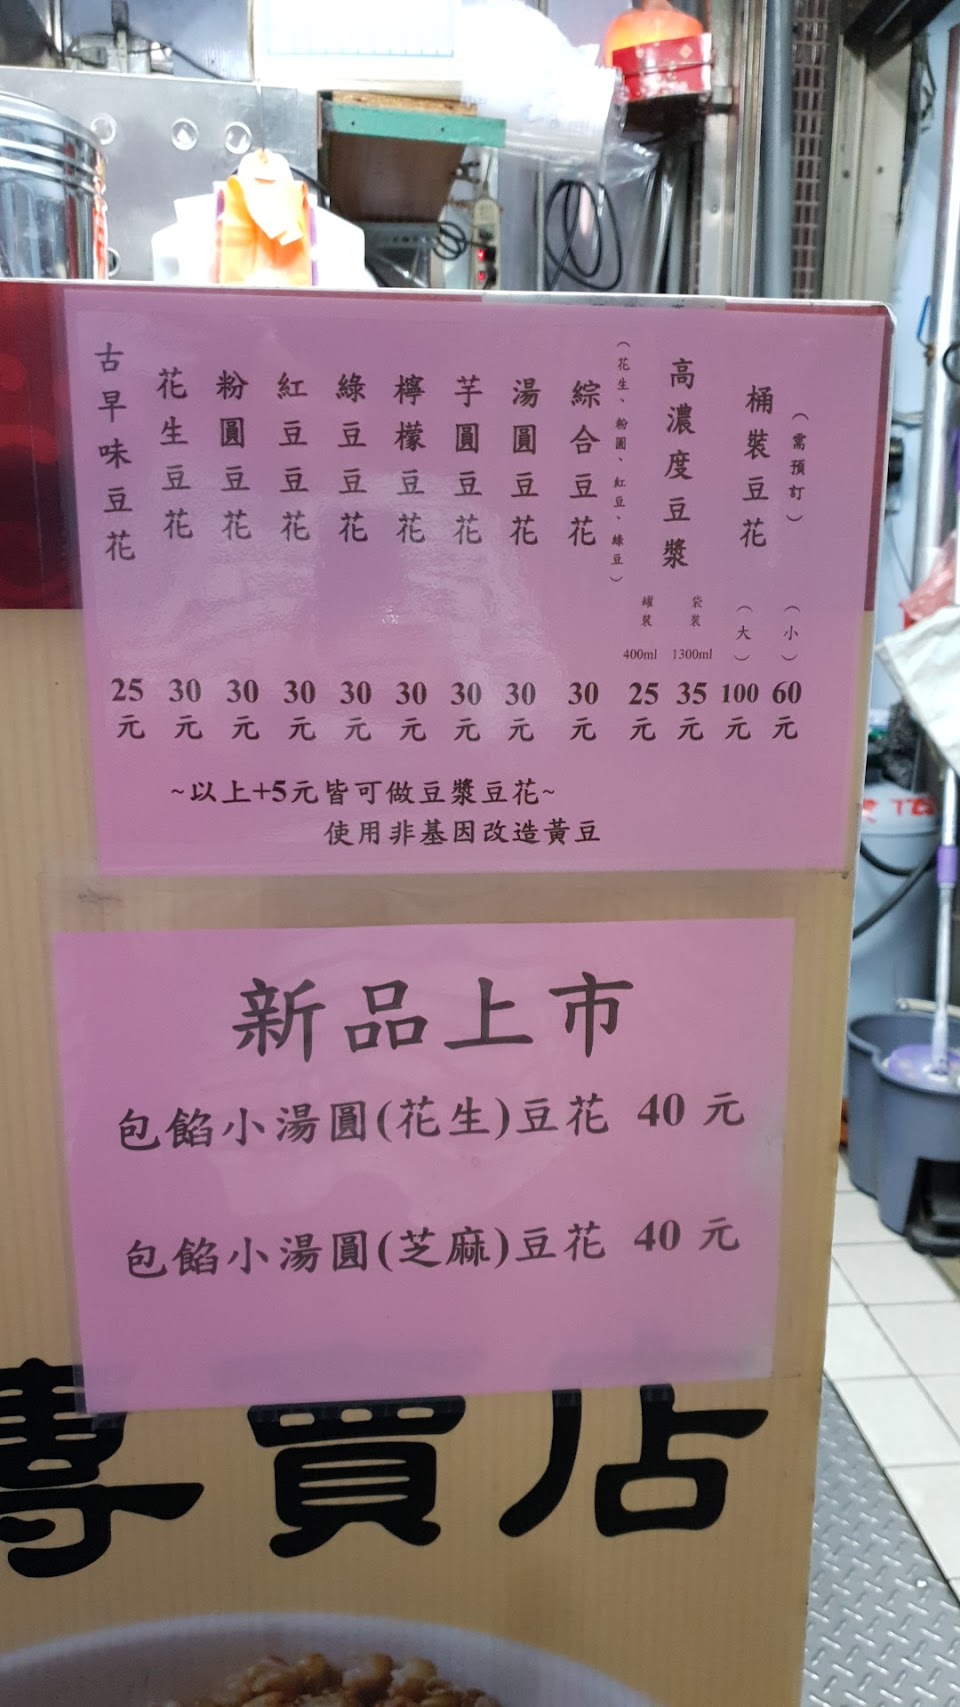 古早味豆花 25元
花生豆花 30元
粉圓豆花 30元
紅豆豆花 30元
綠豆豆花 30元
檸檬豆花 30元
芋圓豆花 30元
湯圓豆花 30元
綜合豆花 30元
(花生、粉圓、紅豆、綠豆)
高濃度豆漿
罐裝 400ml 25元
袋裝 1300ml 35元
桶裝豆花
(需預訂)
(大) 100元
(小) 60元
~以上+5元皆可做豆漿豆花~
使用非基因改造黃豆
新品上市
包餡小湯圓(花生)豆花 40元
包餡小湯圓(芝麻)豆花 40元
專賣店